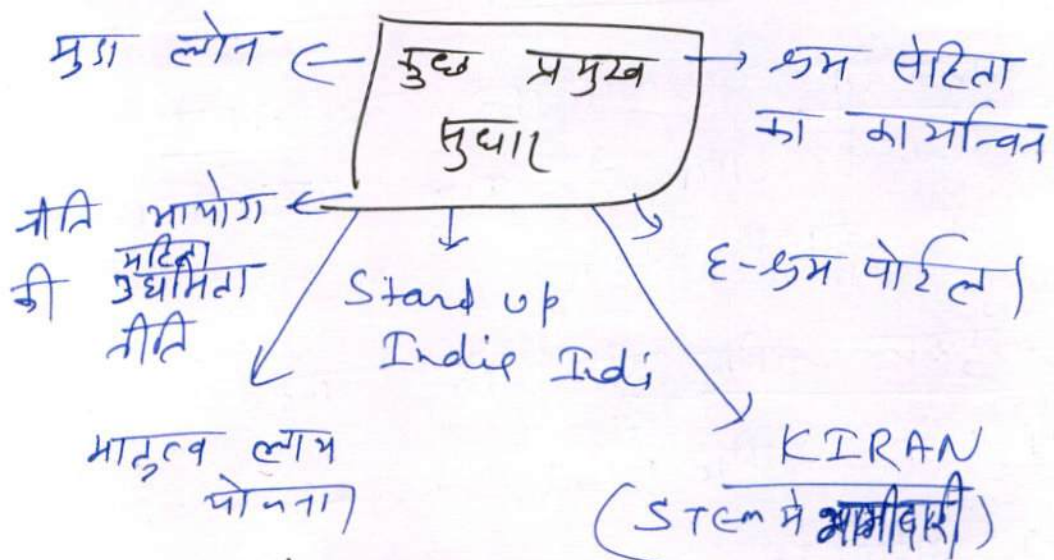 कुछ प्रमुख
सुधार
मुद्रा लोन
श्रम संहिता
का कार्यान्वन
नीति आयोग
की महिला उद्यमिता
नीति
Stand up
India Indi
E-श्रम पोर्टल
मातृत्व लाभ
योजना
KIRAN
(STEM में भागीदारी)